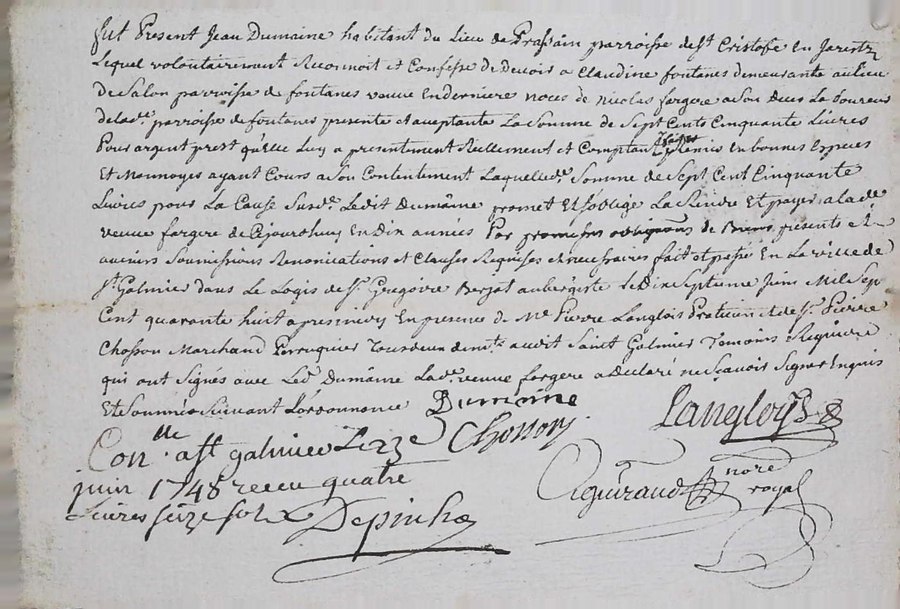 fut Present Jean Dumaine habitant du Lieu de Prassain parroisse de St Cristofe En Jarretz
Lequel volontairement Reconnoit et Confesse de Devoir a Claudine fontanes demeurante au lieu
de Salon parroisse de fontanes veuve En derniere noces de Nicolas fargere a son Deces La boureur
de lade parroisse de fontanes presente et aceptante La Somme de Sept Cents Cinquante Livres
Pour argent prest quElle Luy a presentement Reellement et Comptant Remis En bonnes Especes
Et Monnoyes ayant Cours a son Contentement Laquelle de Somme de Sept Cent Cinquante
Livres pour La Cause Susde Ledit Dumaine promet Et soblige La Rendre Et payer a lade
veuve fargere de Cejourdhuy En Dix années Par promesses obligaons de Biens presents et
avenirs Soumissions Renonciations et Clauses Requises et necessaires fait et passé En La ville de
St Galmier dans Le Logis de Sr Gregoire Berzat aubergiste Le Dix Septieme Juin Mil Sept
Cent quarante huit apresmidy En presence de Me Pierre Langlois Praticien et de Sr Pierre
Chosson Marchand Perruquier Tous deux demts audit Saint Galmier Temoins Requis
qui ont Signés avec Led Dumaine Lade veuve fargere a Declaré ne Scavoir Signer Enquis
Et Sommée Suivant Lordonnance Dumaine
Langloys
Chosson
Conlle a St galmier Le 22e
juin 1748 receu quatre
Livres seize sols Depinhac
Aguiraud nore
royal